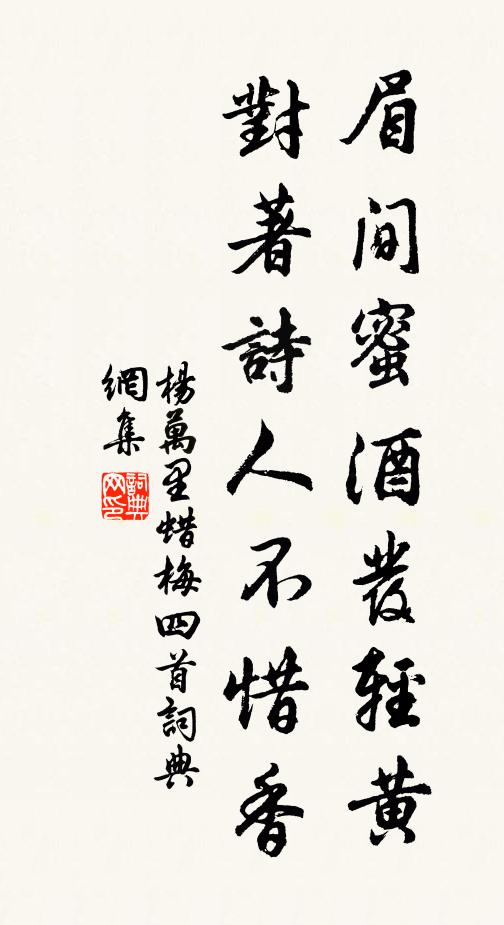 眉间蜜酒發輕黄
對著詩人不惜香
楊萬里蜡梅四首詞典
網集
詞典
网印